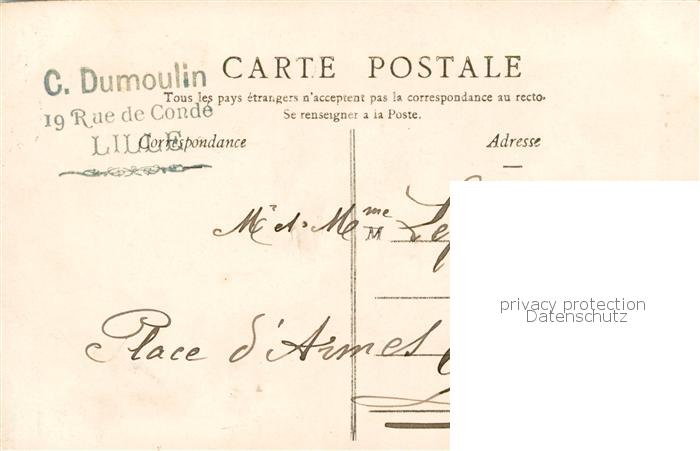 CARTE POSTALE
C. Dumoulin
19 Rue de Condé
LILLE
Tous les pays étrangers n'acceptent pas la correspondance au recto.
Se renseigner a la Poste.
Correspondance
Adresse
Mr et Mme
M
Place d'Armes
privacy protection
Datenschutz